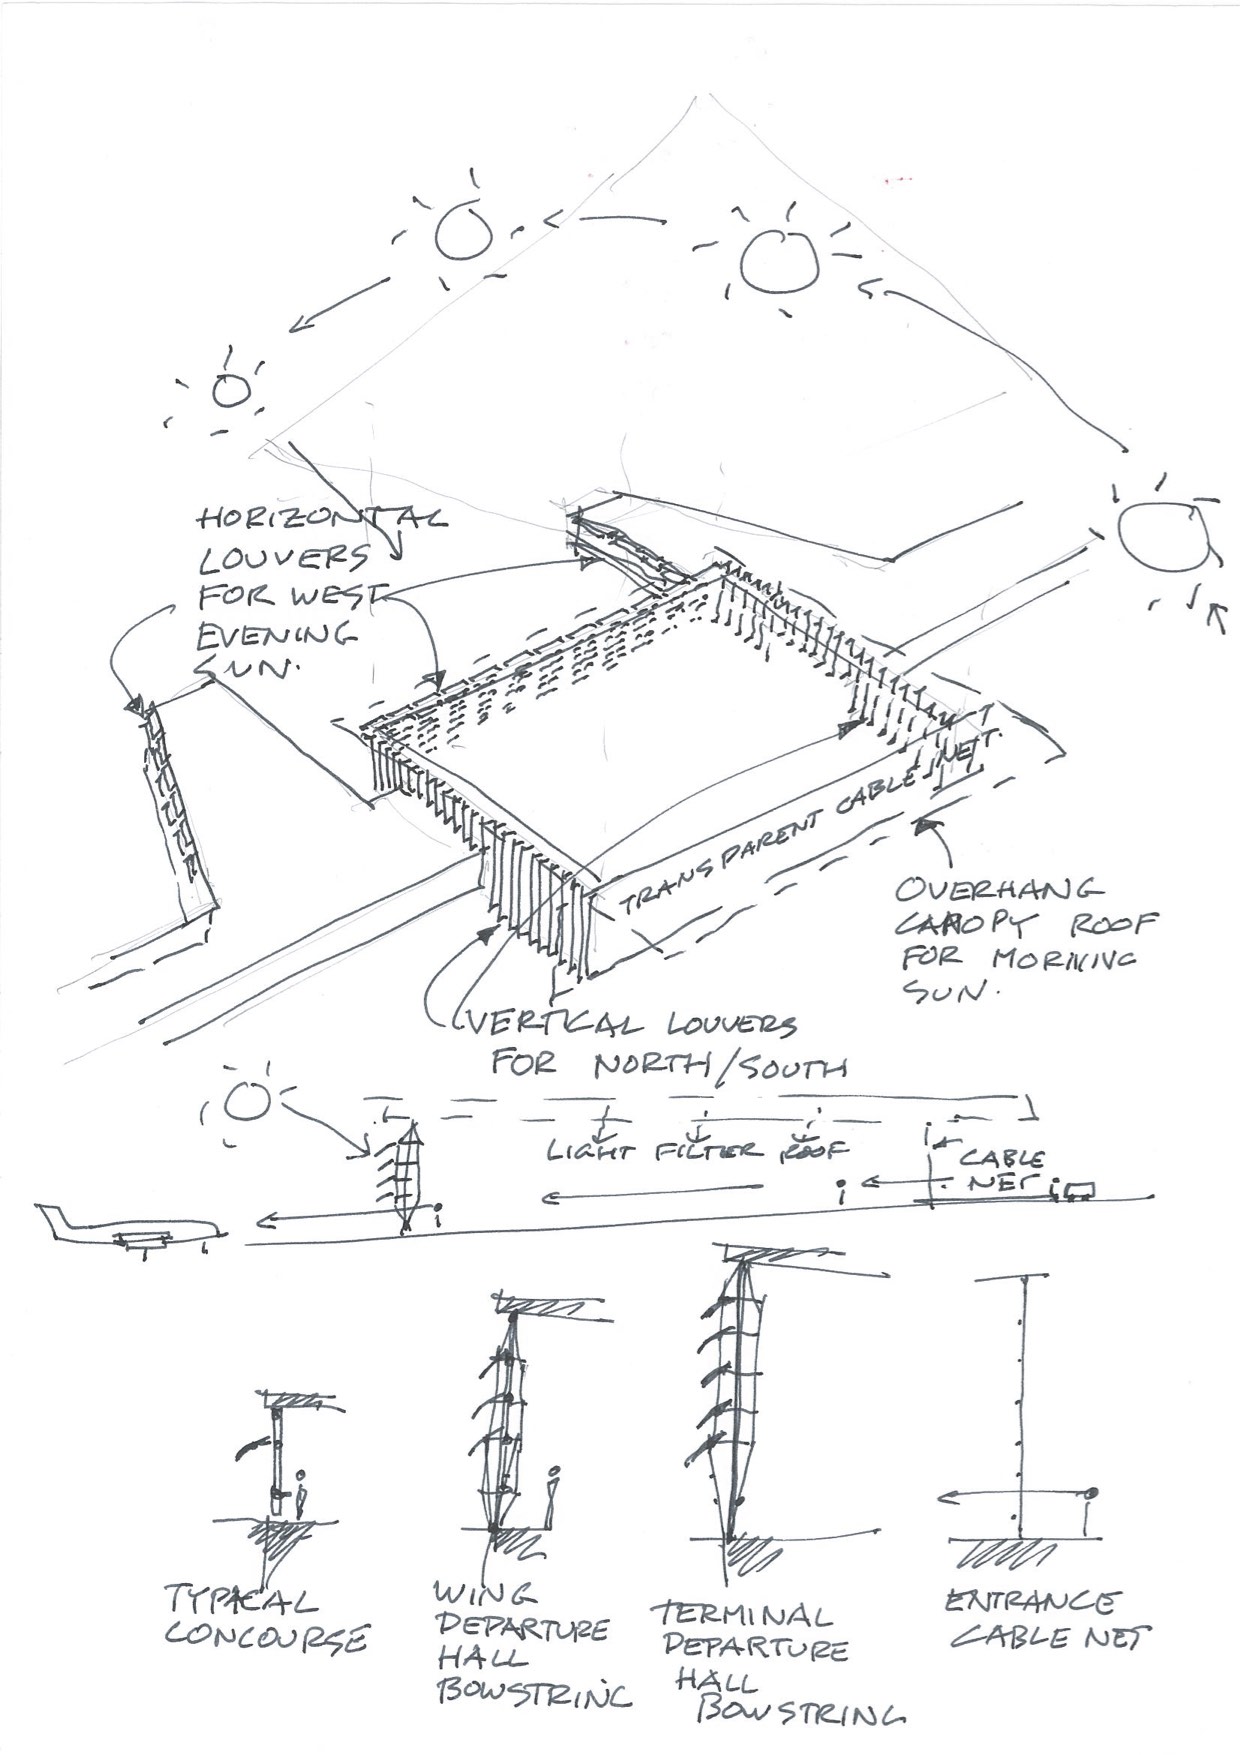 HORIZONTAL
LOUVERS
FOR WEST
EVENING
SUN.
TRANSPARENT CABLE NET.
OVERHANG
CANOPY ROOF
FOR MORNING
SUN.
VERTICAL LOUVERS
FOR NORTH/SOUTH
LIGHT FILTER ROOF
CABLE
NET
TYPICAL
CONCOURSE
WING
DEPARTURE
HALL
BOWSTRING
TERMINAL
DEPARTURE
HALL
BOWSTRING
ENTRANCE
CABLE NET